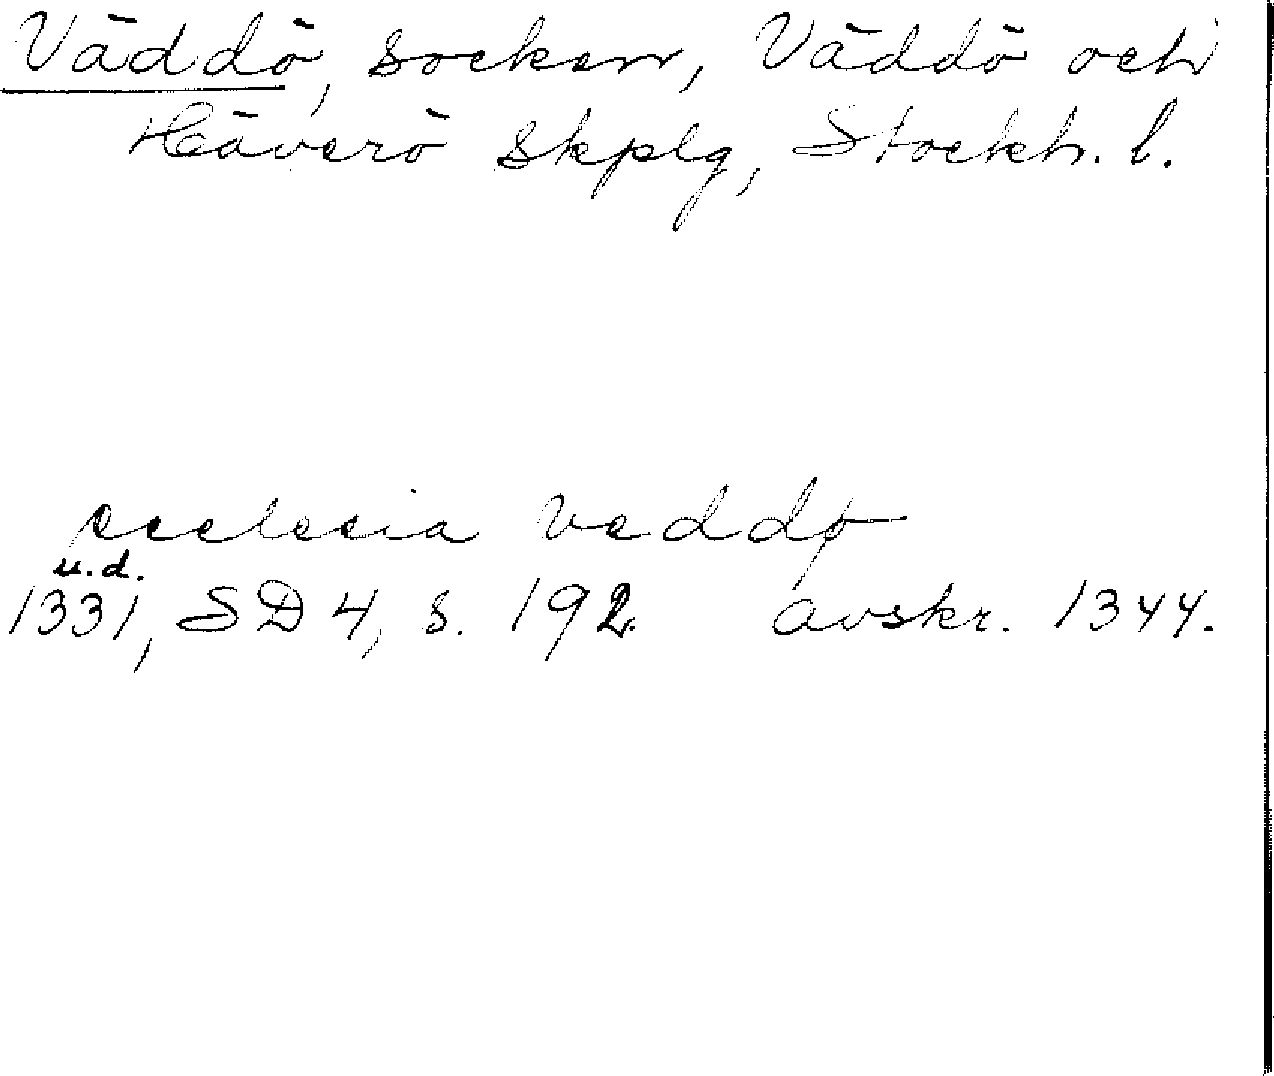 Väddö, socken, Väddö och
Häverö skplg, Stockh. l.
ecclecia veddø
u.d.
1331, SD 4, s. 192. avskr. 1344.